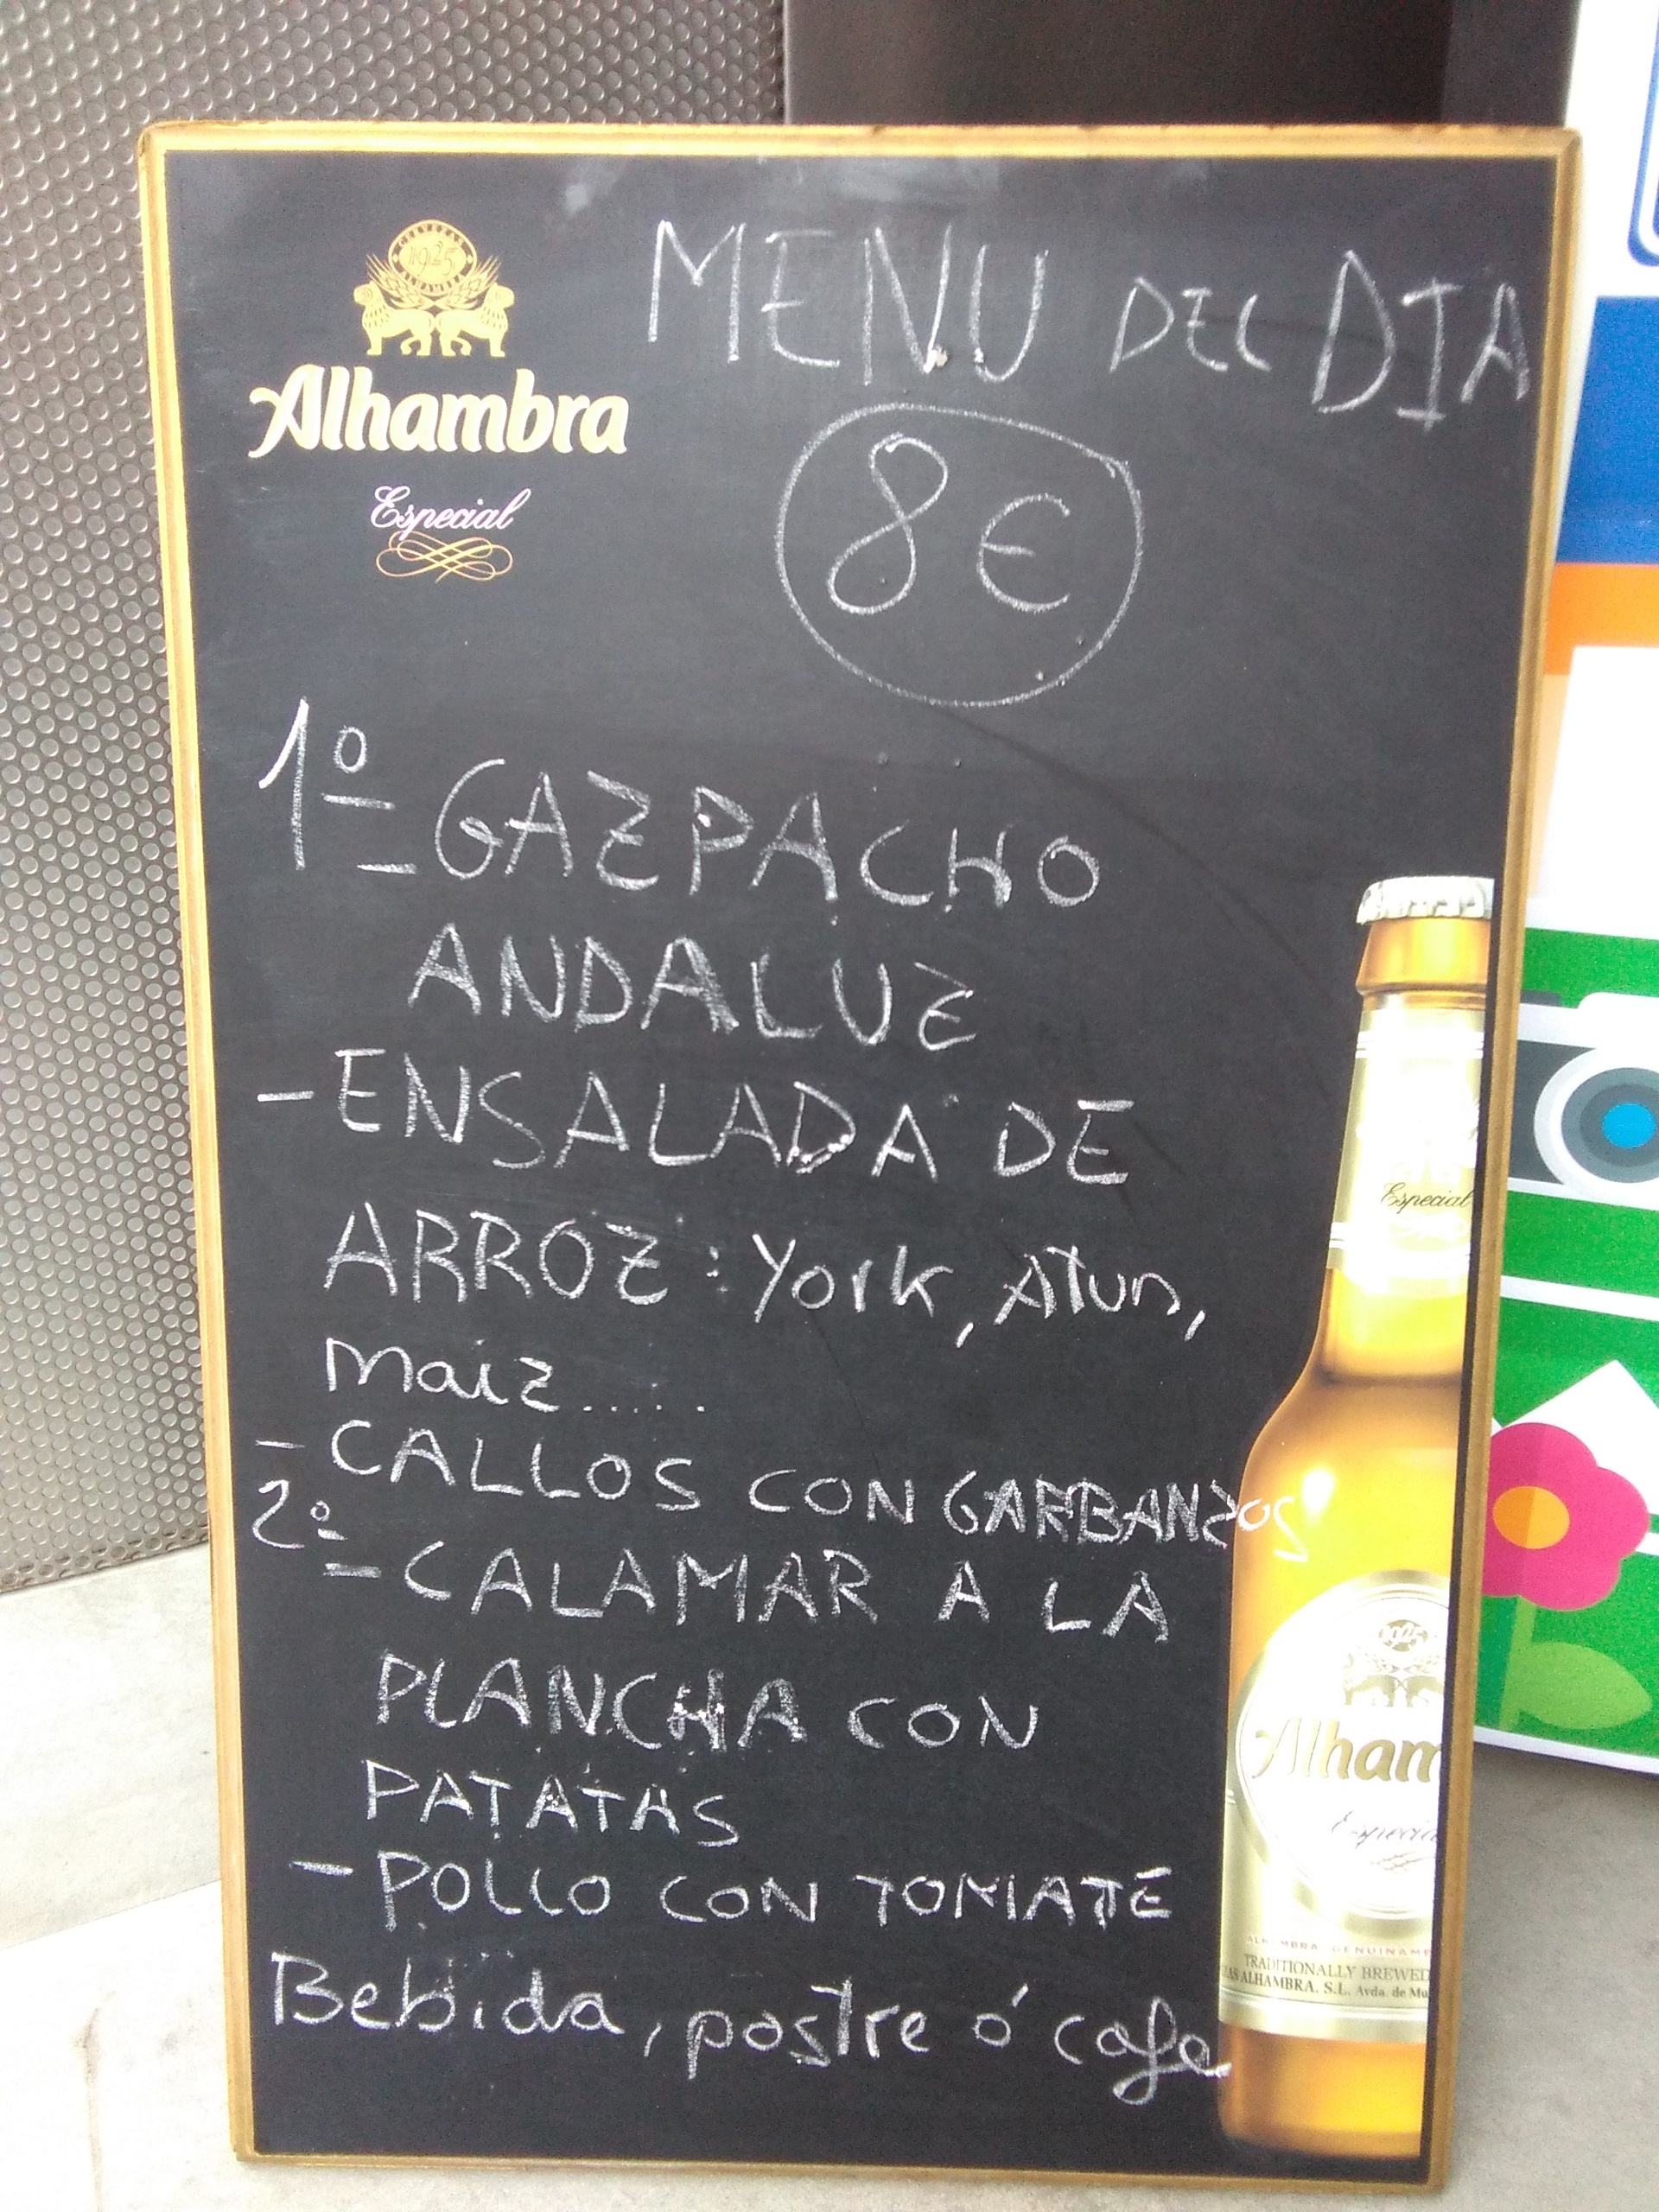 CERVEZAS
1925
ALHAMBRA
Alhambra
Especial
MENU DEL DIA
8€
1º
- GAZPACHO
ANDALUZ
- ENSALADA DE
ARROZ: York, Atun,
maiz.....
- CALLOS CON GARBANZOS
2º
- CALAMAR A LA
PLANCHA CON
PATATAS
- POLLO CON TOMATE
Bebida, postre ó cafe
Especial
1925
Alham
Especia
TRADITIONALLY BREWED
AS ALHAMBRA. S.L. Avda. de Mu